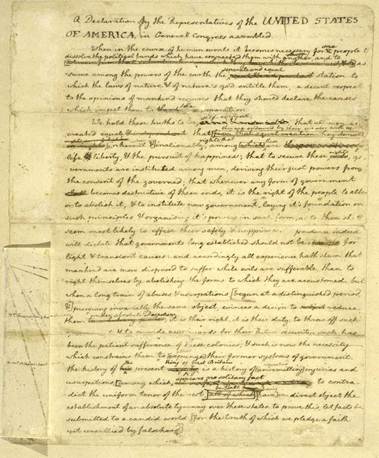 A Declaration by the Representatives of the UNITED STATES
OF AMERICA, in General Congress assembled.
When in the course of human events it becomes necessary for one people to
dissolve the political bands which have connected them with another, and to
assume among the powers of the earth the separate and equal station to
which the laws of nature & of nature's god entitle them, a decent respect
to the opinions of mankind requires that they should declare the causes
which impel them to the separation.
We hold these truths to be self-evident, that all men are
created equal
rights; that among these are
life, liberty, & the pursuit of happiness; that to secure these rights, go-
vernments are instituted among men, deriving their just powers from
the consent of the governed; that whenever any form of government
becomes destructive of these ends, it is the right of the people to alter
or to abolish it, & to institute new government, laying it's foundation on
such principles & organising it's powers in such form, as to them shall
seem most likely to effect their safety & happiness. prudence indeed
will dictate that governments long established should not be changed for
light & transient causes: and accordingly all experience hath shewn that
mankind are more disposed to suffer while evils are sufferable, than to
right themselves by abolishing the forms to which they are accustomed. but
when a long train of abuses & usurpations [begun at a distinguished period
&] pursuing invariably the same object, evinces a design to reduce
them under absolute Despotism it is their right, it is their duty, to throw off such
& to provide new guards for their future security. such has
been the patient sufferance of these colonies; & such is now the necessity
which constrains them to [expunge] their former systems of government.
the history of the present King of Great Britain is a history of [unremitting] injuries and
usurpations, [among which appears no solitary fact to contra-
dict the uniform tenor of the rest all of which] in direct object the
establishment of an absolute tyranny over these states. to prove this, let facts be
submitted to a candid world [for the truth of which we pledge a faith
yet unsullied by falsehood]